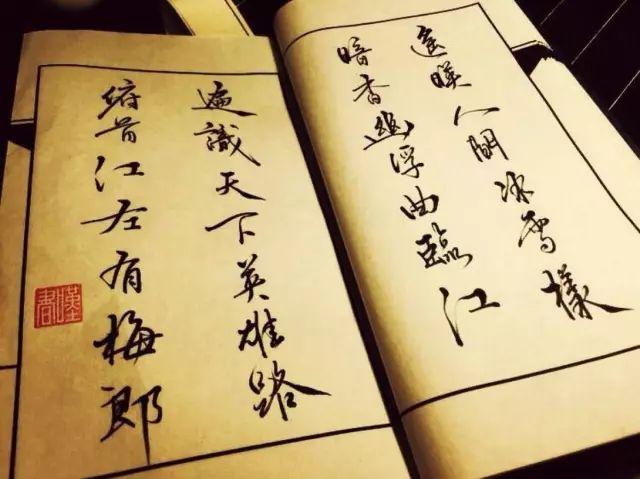 遙暎人間冰雪樣
暗香幽浮曲臨江
遍識天下英雄路
俯首江左有梅郎
漢書